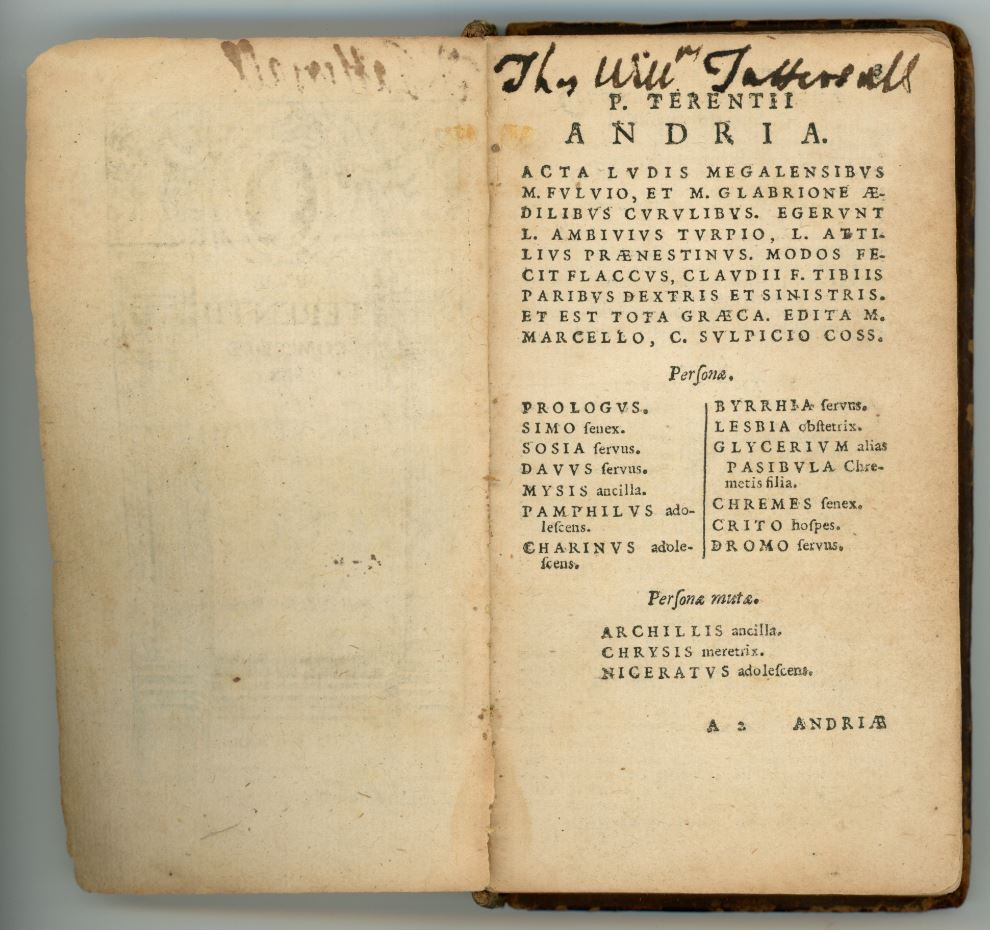 Thos Will^m Tattersall
3
P. TERENTII
ANDRIA.
ACTA LVDIS MEGALENSIBVS
M. FVLVIO, ET M. GLABRIONE Æ-
DILIBVS CVRVLIBVS. EGERVNT
L. AMBIVIVS TVRPIO, L. ATTI-
LIVS PRÆNESTINVS. MODOS FE-
CIT FLACCVS, CLAVDII F. TIBIIS
PARIBVS DEXTRIS ET SINISTRIS.
ET EST TOTA GRÆCA. EDITA M.
MARCELLO, C. SVLPICIO COSS.
Perſonæ.
PROLOGVS.
SIMO ſenex.
SOSIA ſervus.
DAVVS ſervus.
MYSIS ancilla.
PAMPHILVS ado-
leſcens.
CHARINVS adole-
ſcens.
BYRRHIA ſervus.
LESBIA obſtetrix.
GLYCERIVM alias
PASIBVLA Chre-
metis filia.
CHREMES ſenex.
CRITO hoſpes.
DROMO ſervus.
Perſonæ mutæ.
ARCHILLIS ancilla.
CHRYSIS meretrix.
NICERATVS adoleſcens.
A 2 ANDRIÆ